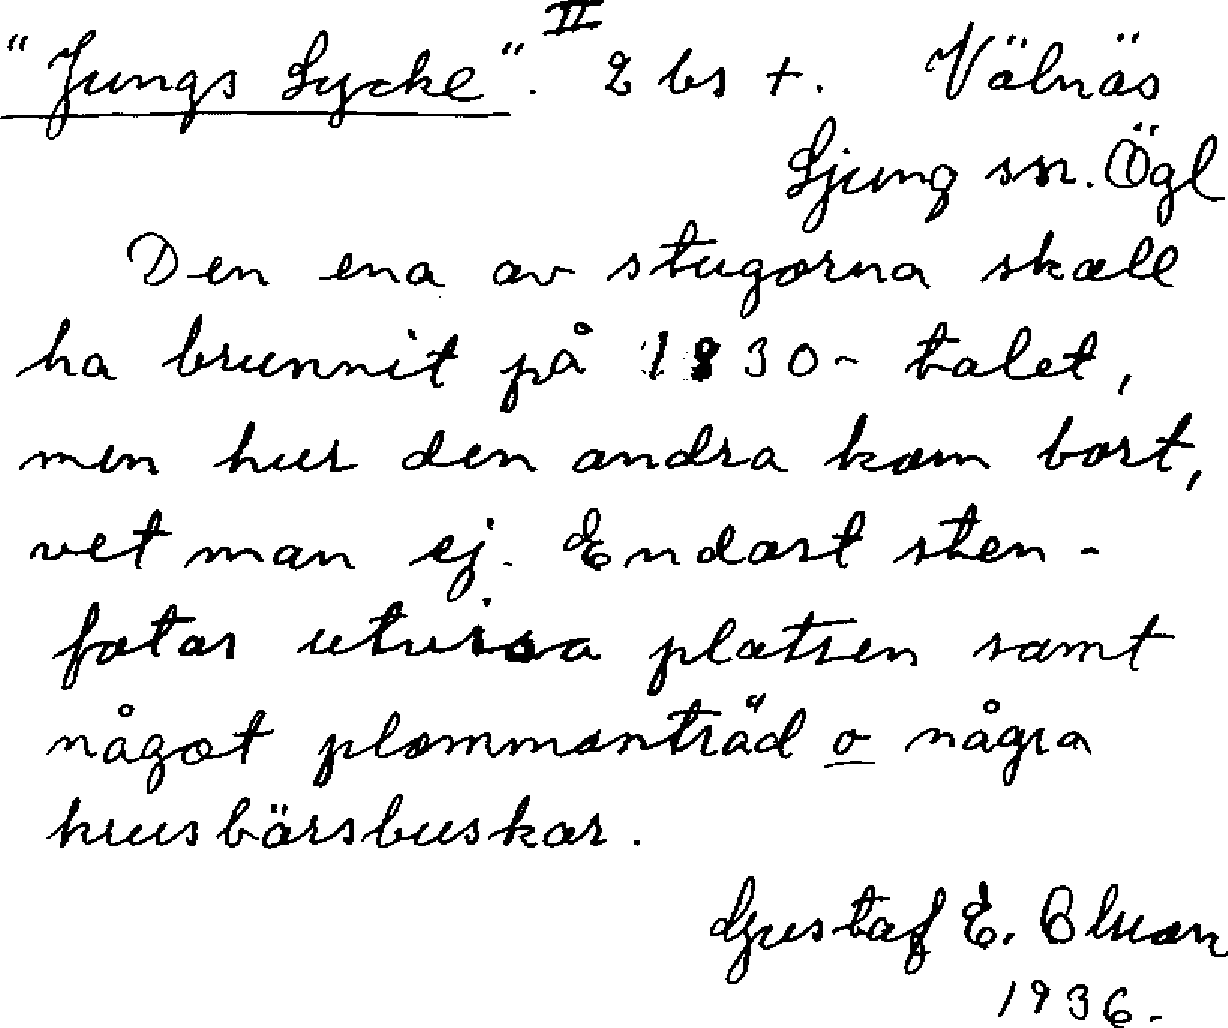 "Jungs Lycke". II 2 bs +. Välnäs
Ljung sn. Ögl
Den ena av stugorna skall
ha brunnit på 1830-talet,
men hur den andra kom bort,
vet man ej. Endast sten-
fotar utvisa platsen samt
något plommonträd o några
krusbärsbuskar.
Gustaf E.
1936.